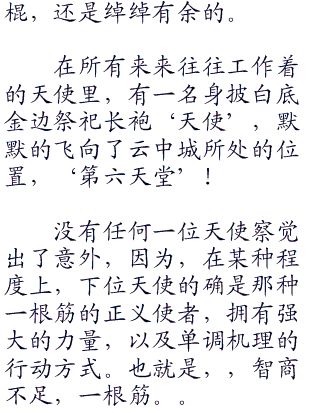 棍，还是绰绰有余的。
在所有来来往往工作着
的天使里，有一名身披白底
金边祭祀长袍‘天使’，默
默的飞向了云中城所处的位
置，‘第六天堂’！
没有任何一位天使察觉
出了意外，因为，在某种程
度上，下位天使的确是那种
一根筋的正义使者，拥有强
大的力量，以及单调机理的
行动方式。也就是，，智商
不足，一根筋。。